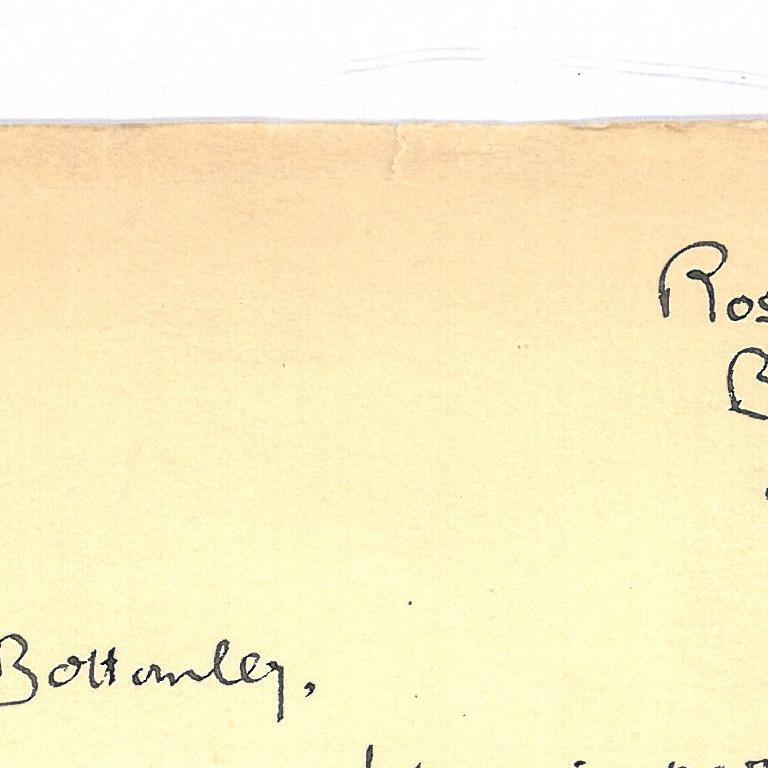 Ros
B
Bottomley,